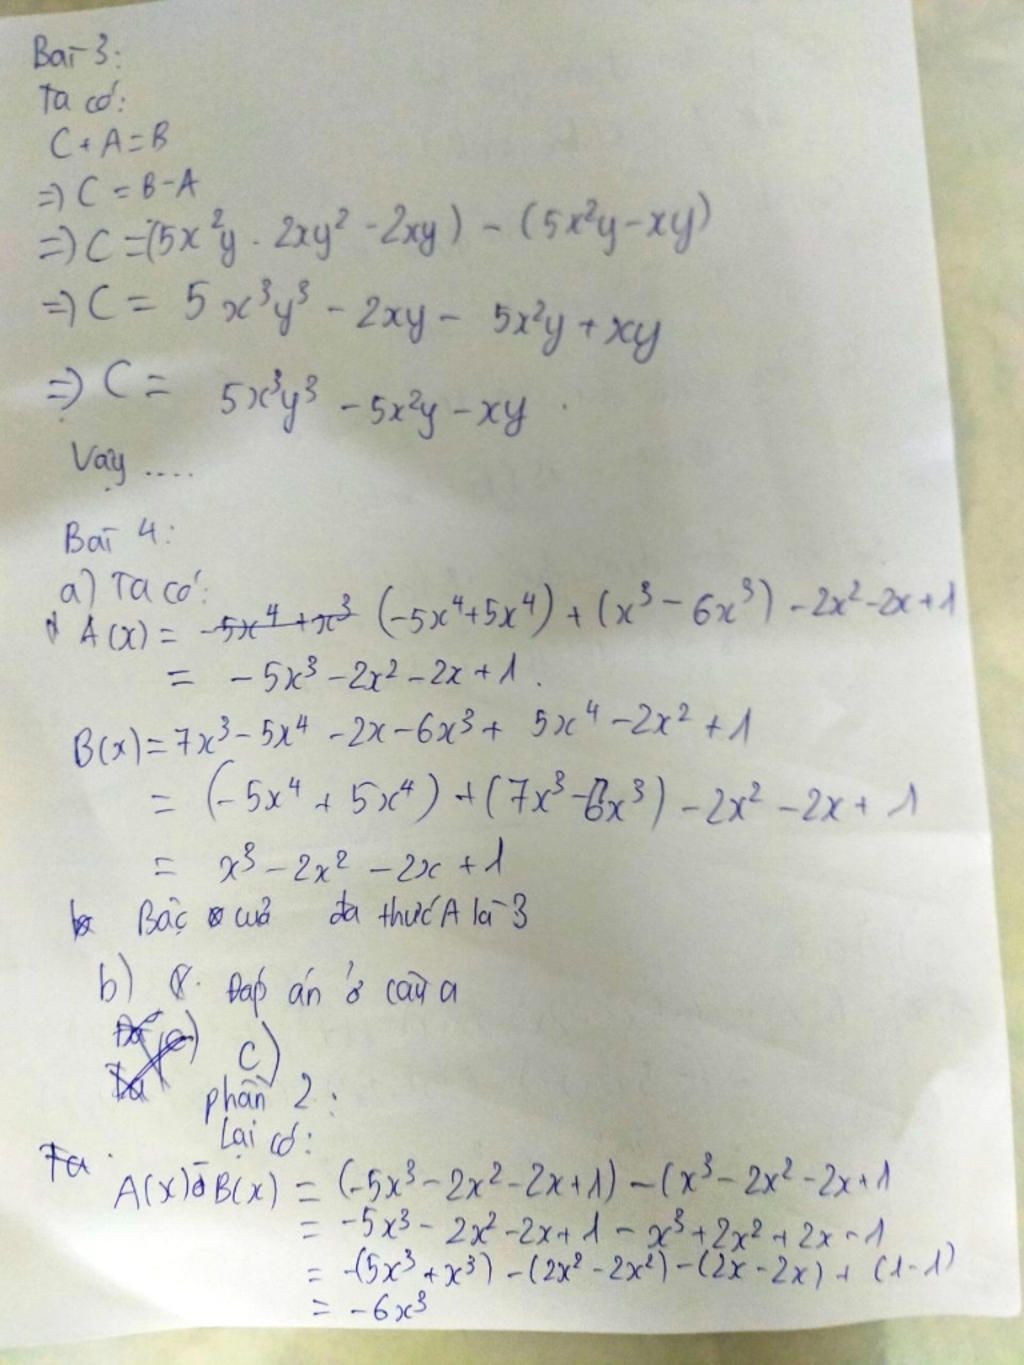 Bài 3:
Ta có:
C + A = B
=> C = B - A
=> C = (5x²y . 2xy² - 2xy) - (5x²y - xy)
=> C = 5x³y³ - 2xy - 5x²y + xy
=> C = 5x³y³ - 5x²y - xy .
Vậy ....
Bài 4:
a) Ta có:
A(x) = -5x⁴ + x³ (-5x⁴ + 5x⁴) + (x³ - 6x³) - 2x² - 2x + 1
= -5x³ - 2x² - 2x + 1 .
B(x) = 7x³ - 5x⁴ - 2x - 6x³ + 5x⁴ - 2x² + 1
= (-5x⁴ + 5x⁴) + (7x³ - 6x³) - 2x² - 2x + 1
= x³ - 2x² - 2x + 1
Bậc của đa thức A là 3
b) Đáp án ở câu a
c)
phần 2:
Lại có:
Ta
A(x) - B(x) = (-5x³ - 2x² - 2x + 1) - (x³ - 2x² - 2x + 1
= -5x³ - 2x² - 2x + 1 - x³ + 2x² + 2x - 1
= -(5x³ + x³) - (2x² - 2x²) - (2x - 2x) + (1 - 1)
= -6x³